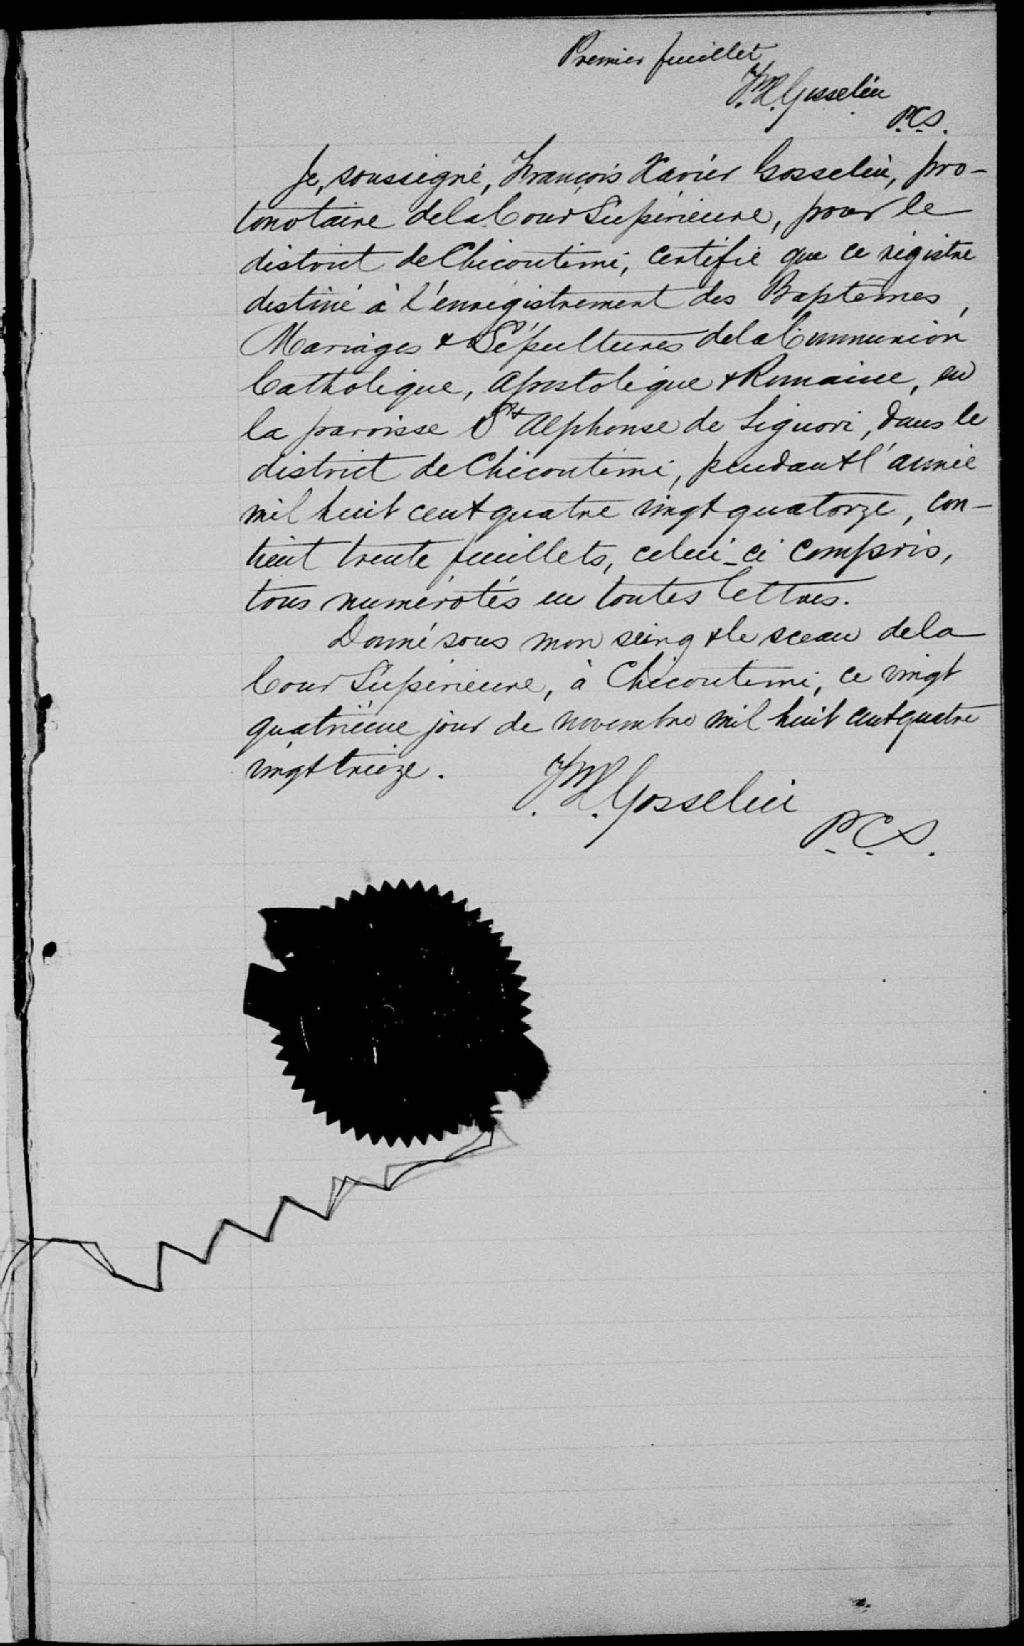 Premier feuillet
F.X. Gosselin
P.C.S.
Je, soussigné, François Xavier Gosselin, pro-
tonotaire de la Cour Supérieure, pour le
district de Chicoutimi, certifie que ce régistre
destiné à l'enrégistrement des Baptêmes,
Mariages & Sépultures de la Communion
Catholique, Apostolique & Romaine, en
la paroisse St Alphonse de Liguori, dans le
district de Chicoutimi, pendant l'année
mil huit cent quatre vingt quatorze, con-
tient trente feuillets, celui-ci compris,
tous numérotés en toutes lettres.
Donné sous mon seing & le sceau de la
Cour Supérieure, à Chicoutimi, ce vingt
quatrième jour de novembre mil huit cent quatre
vingt treize.
F.X. Gosselin
P.C.S.